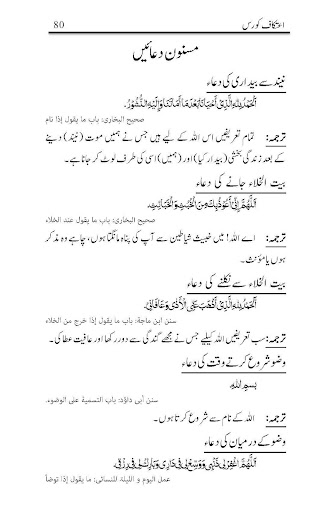 اعتکاف کورس
80
مسنون دعائیں
نیند سے بیداری کی دعاء
اَلْحَمْدُ لِلّٰهِ الَّذِيْ اَحْيَانَا بَعْدَ مَا اَمَاتَنَا وَاِلَيْهِ النُّشُوْرُ.
صحيح البخاري: باب ما يقول إذا نام
ترجمہ: تمام تعریفیں اس اللہ کے لیے ہیں جس نے ہمیں موت (نیند) دینے
کے بعد زندگی بخشی (بیدار کیا) اور (ہمیں) اسی کی طرف لوٹ کر جانا ہے۔
بیت الخلاء جانے کی دعاء
اَللّٰهُمَّ اِنِّيْ اَعُوْذُ بِكَ مِنَ الْخُبُثِ وَالْخَبَائِثِ
صحيح البخاري: باب ما يقول عند الخلاء
ترجمہ: اے اللہ! میں خبیث شیاطین سے آپ کی پناہ مانگتا ہوں، چاہے وہ مذکر
ہوں یا مؤنث۔
بیت الخلاء سے نکلنے کی دعاء
اَلْحَمْدُ لِلّٰهِ الَّذِيْ اَذْهَبَ عَنِّي الْاَذٰى وَعَافَانِيْ
سنن ابن ماجة: باب ما يقول إذا خرج من الخلاء
ترجمہ: سب تعریفیں اللہ کیلیے جس نے مجھے گندگی سے دور رکھا اور عافیت عطا کی۔
وضو شروع کرتے وقت کی دعاء
بِسْمِ اللّٰهِ
سنن أبي داؤد: باب التسمية على الوضوء.
ترجمہ: اللہ کے نام سے شروع کرتا ہوں۔
وضو کے درمیان کی دعاء
اَللّٰهُمَّ اغْفِرْ لِيْ ذَنْبِيْ وَوَسِّعْ لِيْ فِيْ دَارِيْ وَبَارِكْ لِيْ فِيْ رِزْقِيْ.
عمل اليوم و الليلة للنسائي: ما يقول إذا توضأ